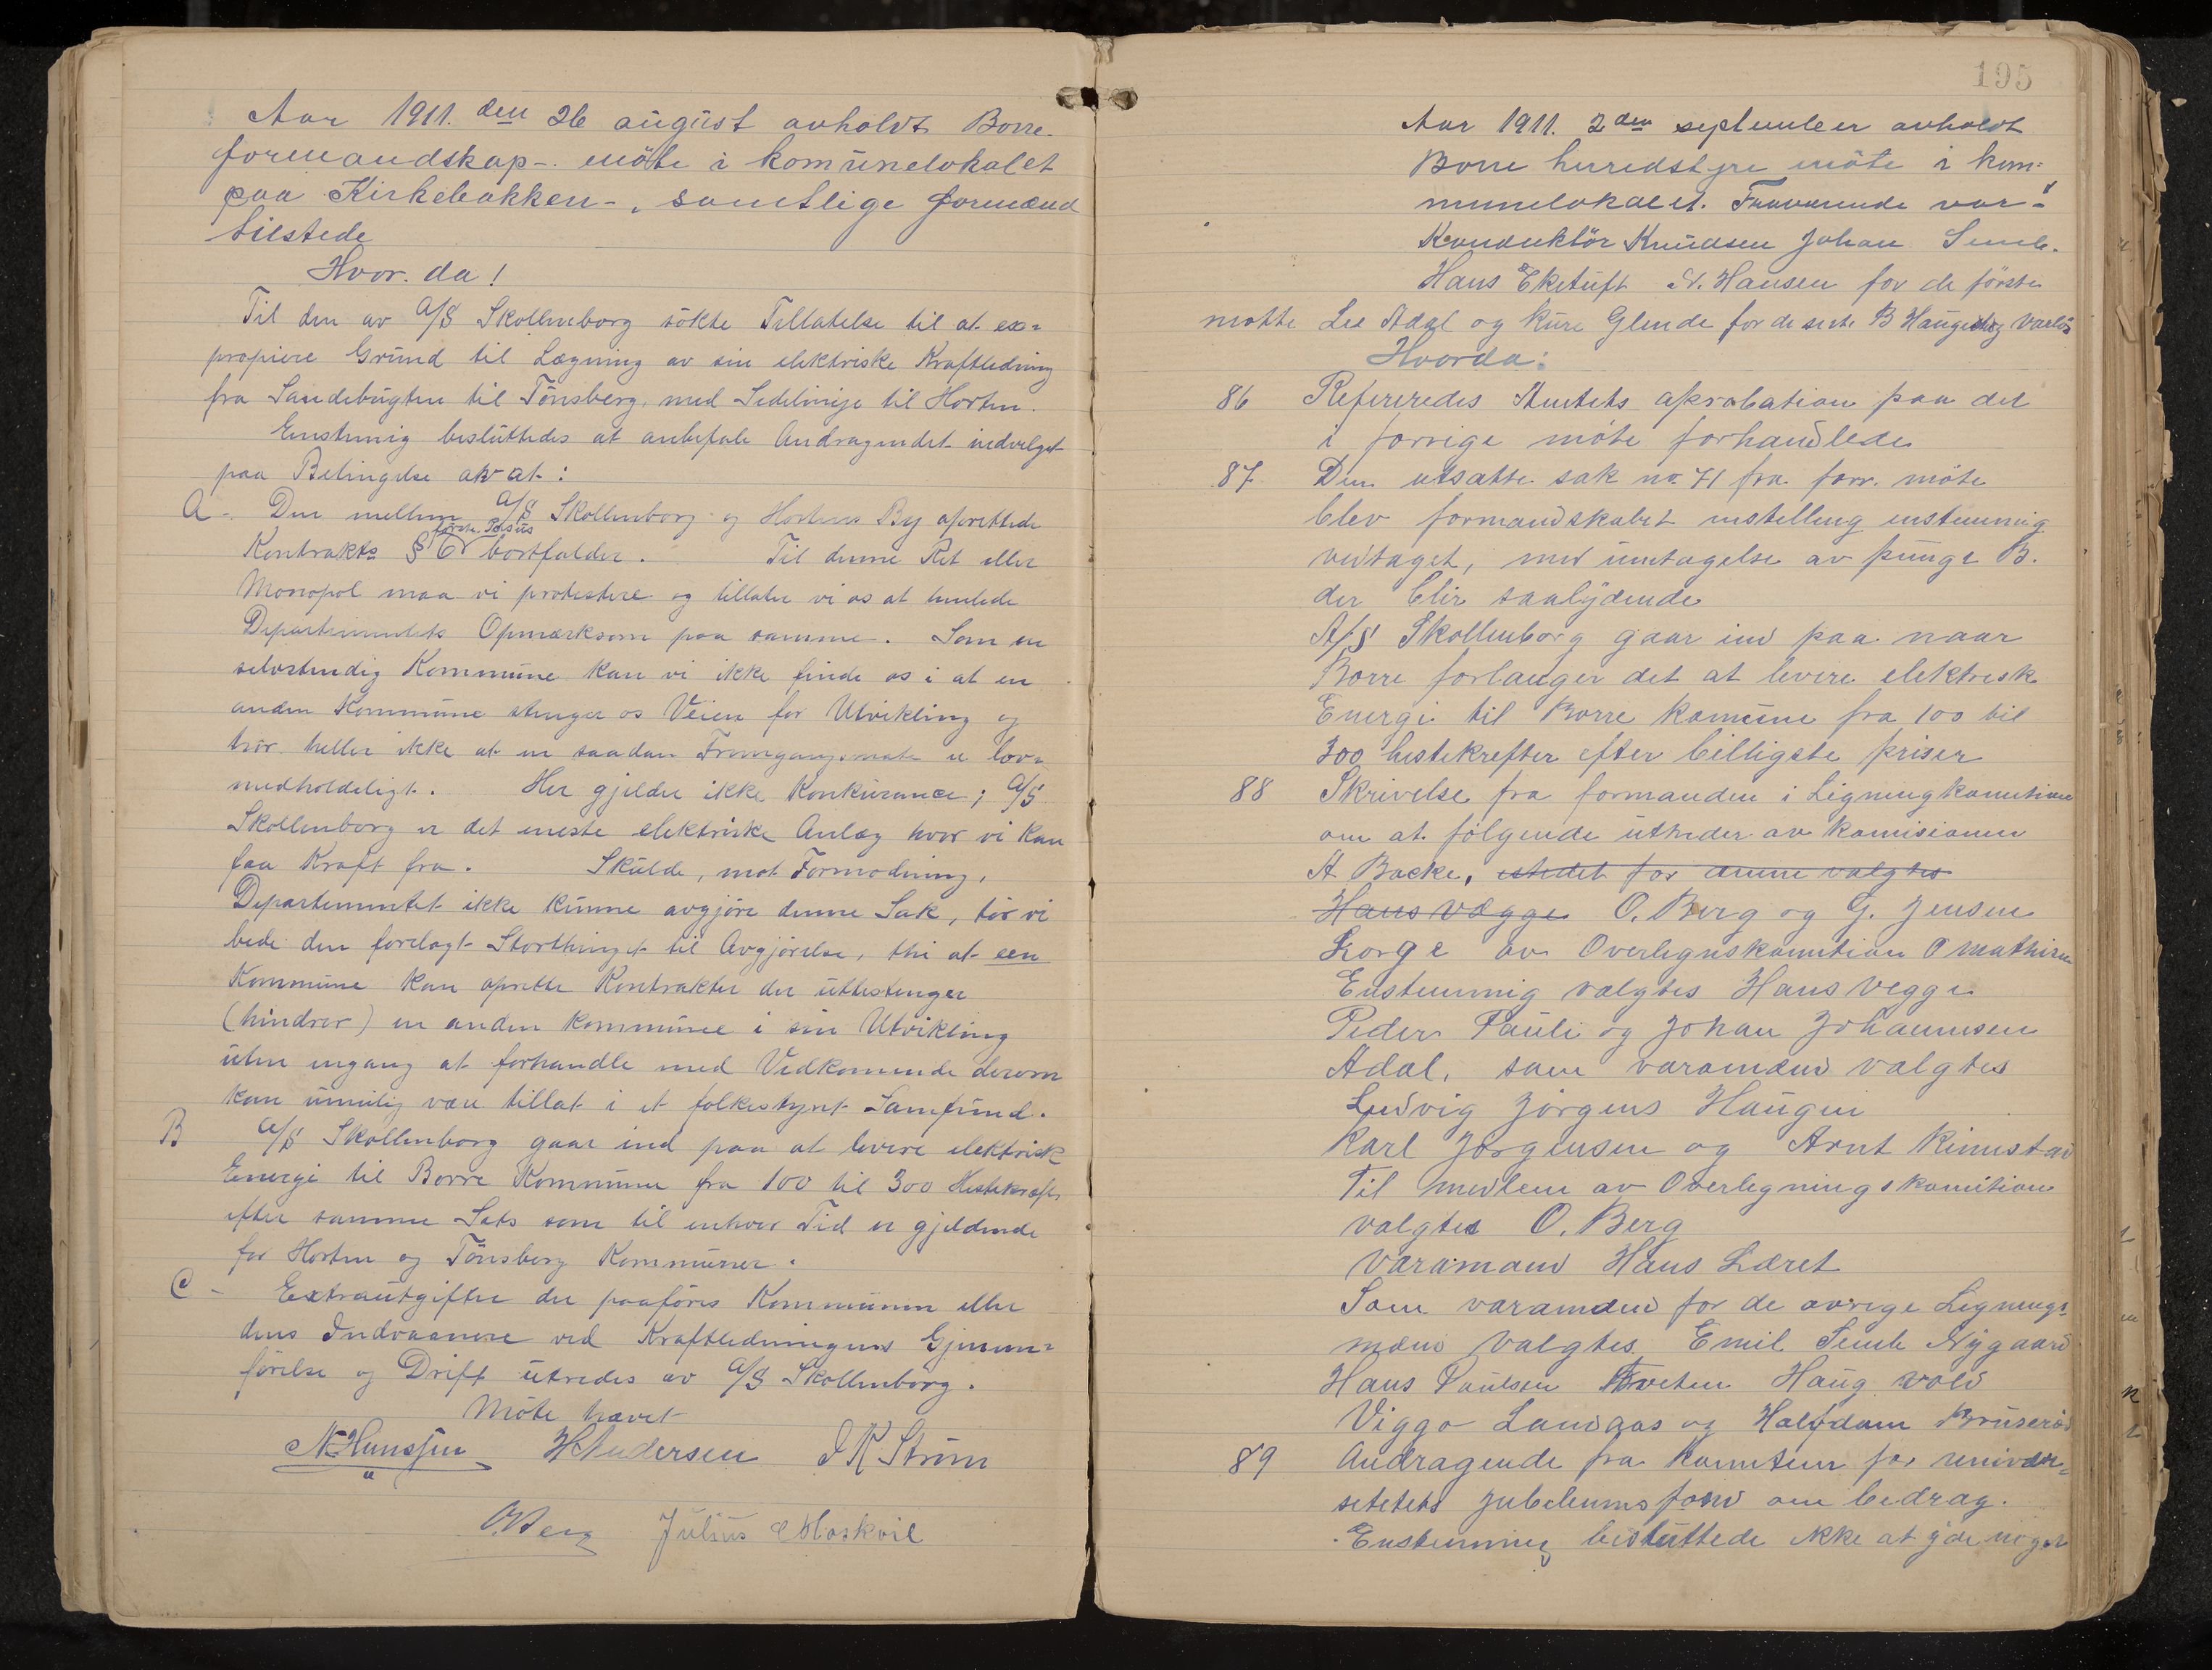 Aar 1911. den 26 august avholdt Borre
formandskap-. möte i komunelokalet
paa Kirkebakken-, samtlige formænd
tilstede
Hvor. da!
Til den av A/S Skollenborg sökte Tillatelse til at ex-
propiere Grund til Lægning av sin elektriske Kraftledning
fra Sandebugten til Tönsberg, med Sidelinje til Horten.
Enstemig besluttedes at anbefale Andragendet indvilget
paa Betingelse av at:
A - Den mellem A/S Skollenborg og Hortens By oprettede
förste Passus
Kontrakts § 6 bortfalder. Til denne Ret eller
Monopol maa vi protestere og tillater vi os at henlede
Departementets Opmærksom paa samme. Som en
selvstendig Kommune kan vi ikke finde os i at en
anden Kommune stenger os Veien for Utvikling og
tror heller ikke at en saadan Fremgangsmaate er lov-
medholdeligt. Her gjelder ikke Konkurance; A/S
Skollenborg er det eneste elektriske Anlæg hvor vi kan
faa Kraft fra. Skulde, mot Formodning,
Departementet ikke kunne avgjöre denne Sak, tör vi
bede den forelagt Storthinget til Avgjörelse, thi at een
Kommune kan oprette Kontrakter der uttestenger
(hindrer) en anden Kommune i sin Utvikling
uten engang at forhandle med Vedkommende derom
kan umulig være tillat i et folkestyret Samfund.
B A/S Skollenborg gaar ind paa at levere elektrisk
Energi til Borre Kommune fra 100 til 300 Hestekræfter
efter samme Sats som til enhver Tid er gjeldende
for Horten og Tönsberg Kommuner.
C - Extrautgifter der paaföres Kommunen eller
dens Indvaanere ved Kraftledningens Gjennem-
förelse og Drift utredes av A/S Skollenborg.
Möte hævet
N Hanssen H Andersen J K Strøm
O Berg Julius Moskvil
195
Aar 1911. 2den september avholdt
Borre herredstyre möte i kom-
munelokalet. Fraværende var:
Konduktör Knudsen Johan Semb.
Hans Eketuft N. Hansen for de förste
motte Lee Adal og Kure Glende for de siste B Haugen
Hvorda:
86 Refereredes Amtets aprobation paa det
i forrige möte forhandlede
87 Den utsatte sak no 71 fra forr. möte
blev formandskabet instelling enstemmig
vedtaget, med untagelse av punge B.
der blir saalydende
A/S Skollenborg gaar ind paa naar
Borre forlanger det at levere elektrisk
Energi til Borre komune fra 100 til
300 hestekrefter efter billigste priser
88 Skrivelse fra formanden i Ligningkomition
om at fölgende uttreder av komisionen
A Backe, istedet for denne valgtes
Hans Vegge O. Berg og G. Jensen
Lorge av Overlignskomition O Mathisen
Enstemmig valgtes Hans Vegge
Peder Pauli og Johan Johannesen
Adal, som varamænd valgtes
Ludvig Jörgens Haugen
Karl Jörgensen og Arnt Rinnstad
Til medlem av Overlegningskomition
valgtes O. Berg
varamand Hans Læret
Som varamænd for de övrige Lignings-
mænd valgtes Emil Semb Nygaard
Hans Paulsen Tveten Haug vold
Viggo Landaas og Halfdan Bruseröd
89 Andragende fra Komiteen for univær-
sitetets Jubeleumsfond om bedrag.
Enstemmig besluttede ikke at yde noget